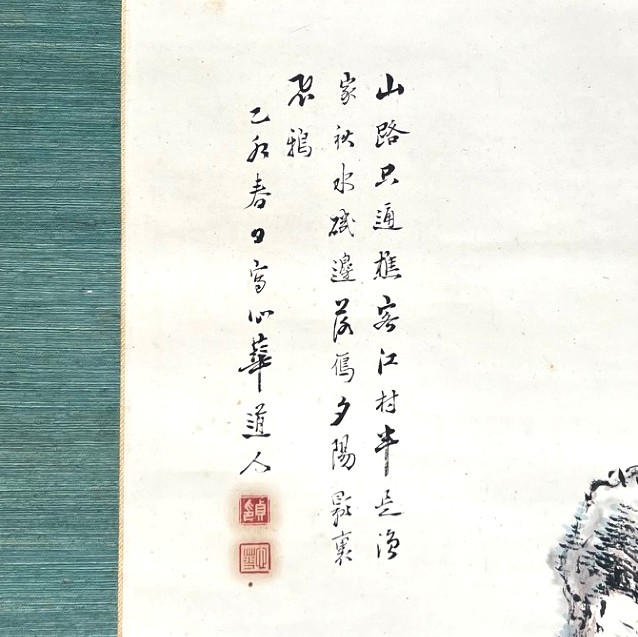 山路只通樵客江村半是漁
家秋水磯邊落鴈夕陽影裏
飛鴉
乙亥春日寫心華道人